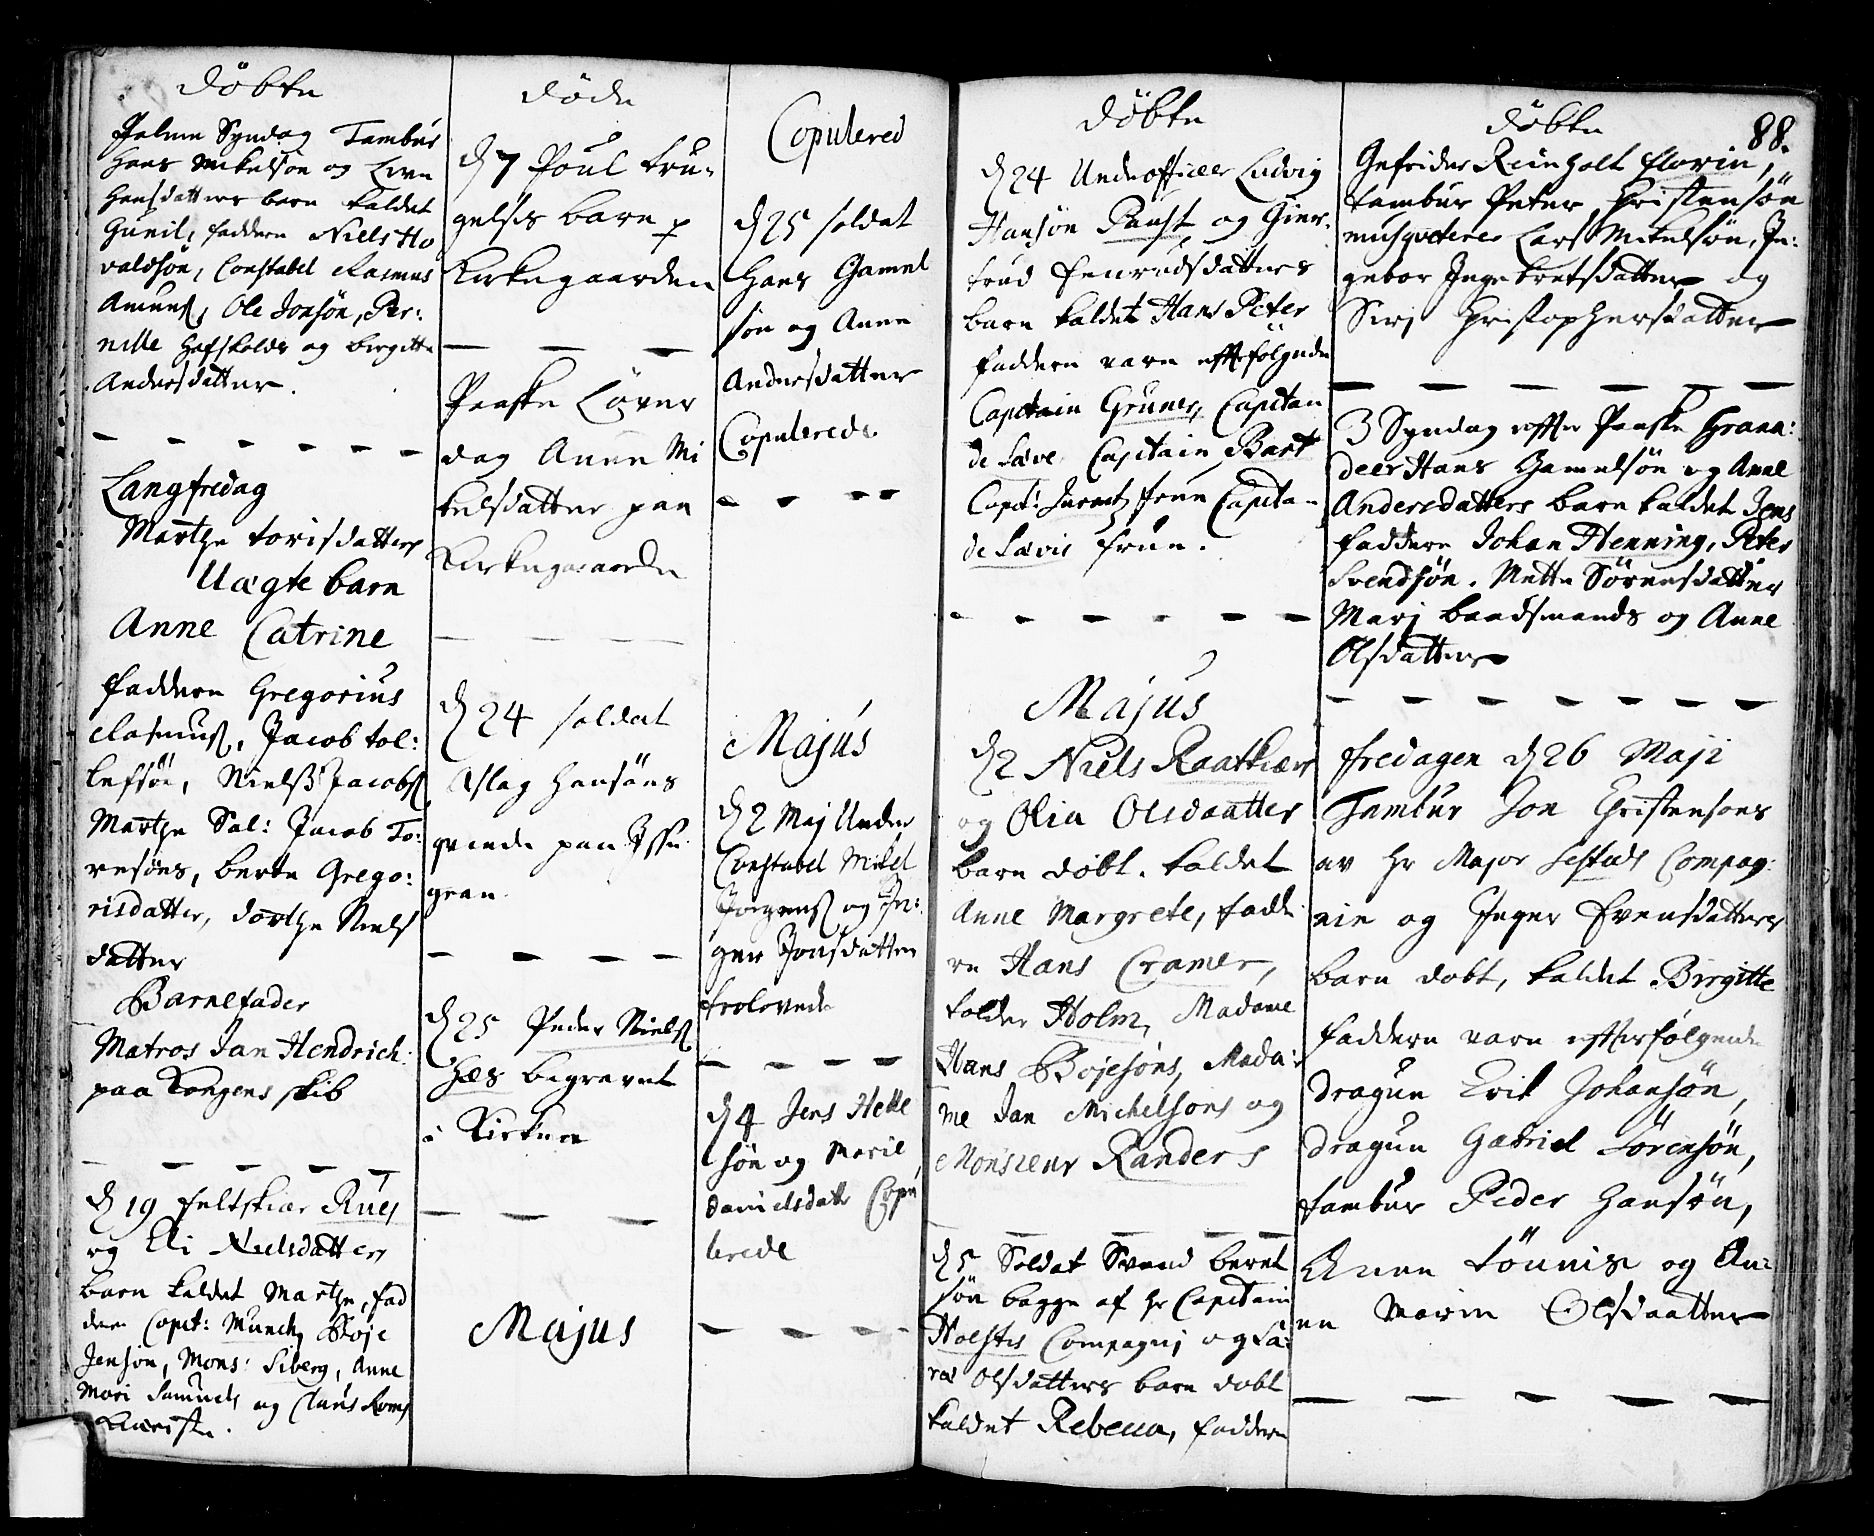 Döbte
Palme Syndag Tambur
Hans Mikelsön og Live
Hansdatters barn kaldet
Gunil, faddere Niels Ho
valdsön, Constabel Rasmus
Amunds, Ole Jonsön, Per:
nille Hafskolds og birgitte
Andersdatter.
Langfredag
Marthe torisdatters
Uægte barn
Anne Catrine
faddere Gregorius
Rasmuss, Jacob tol:
lefsön, Nielss Jacobss
Marthe Sal: Jacob To:
resöns, berte Grego:
risdatter, dorthe Niels
datter
Barnefader
Matros Jan Hendrich:
paa Kongens skib
d 19 feltskiær Rues
og Eli Nielsdatters
barn kaldet Marthe, fad
dere Capt: Munch, Boje
Jensön, Mons: Siberg, Anne
Mari Samuels og Claus Roms
Kæriste.
döde
d 7 Poul tru:
gelsis barn p
Kirkegaarden
Paaske Löver
dag Anne Mi
kelsdatter paa
Kirkegaarden
d 24 soldat
Aslag Hansöns
qvinde paa
d 25 Peder Nielss
Hæs begravet
i Kirken
Majus
Copulered
d 25 soldat
Hans Gamel
sön og Anne
Andersdatter
Copulerede.
Majus
d 2 Maj Under
Constabel Mikel
Jörgens og In:
ger Jonsdatter
trolovede
d 4 Jens Helle
sön og Marie
danielsdatt Copu
lerede
Döbte
d 24 Underofficer Ludvig
Hansön Paust og Gier
trud Henrudsdatters
barn kaldet Hans Peter
faddere vare efterfölgende
Capitain Gruner, Capitan
de Sæve Capitain Bart
Capt: frue Capitan
de Sævis frue.
Majus
d 2 Niels Raatkiær
og Olia Olsdaatter
barn döbt. kaldet
Anne Margrete, fadde
re Hans Cramer,
tolder Holm, Madame
Hans Böjesöns, Mada:
me Jan Michelsöns og
Monsieur Randers
d 5 Soldat Svend beret
sön begge af Hr Capitain
Holstes Compagni og Sa:
ra Olsdatters barn döbt
kaldet Rebecca, faddere
döbte
88.
Gefrider Reinholt Florin,
tambur Peter Christensön
musqveterer Lars Mikelsön, In:
gebor Ingebretsdatter og
Siri Christophersdatter
3 Syndag effter Paaske Grana:
deer Hans Gamelsön og Anne
Andersdatters barn kaldet Jens
faddere Johan Henning, Peter
Svendsön. Mette Sörensdatter
Mari baadsmands og Anne
Olsdatter
fredagen d 26 Maji
Tambur Jon Christensöns
av Hr Major Sestads Compag:
nie og Inger Evensdatters
barn döbt, kaldet Birgitte
faddere vare efterfölgende
Dragun Erik Johansön,
Dragun Gabriel Sörensön,
tambur Peder Hansön,
Anne tönnis og An:
ne Marie Olsdaatter